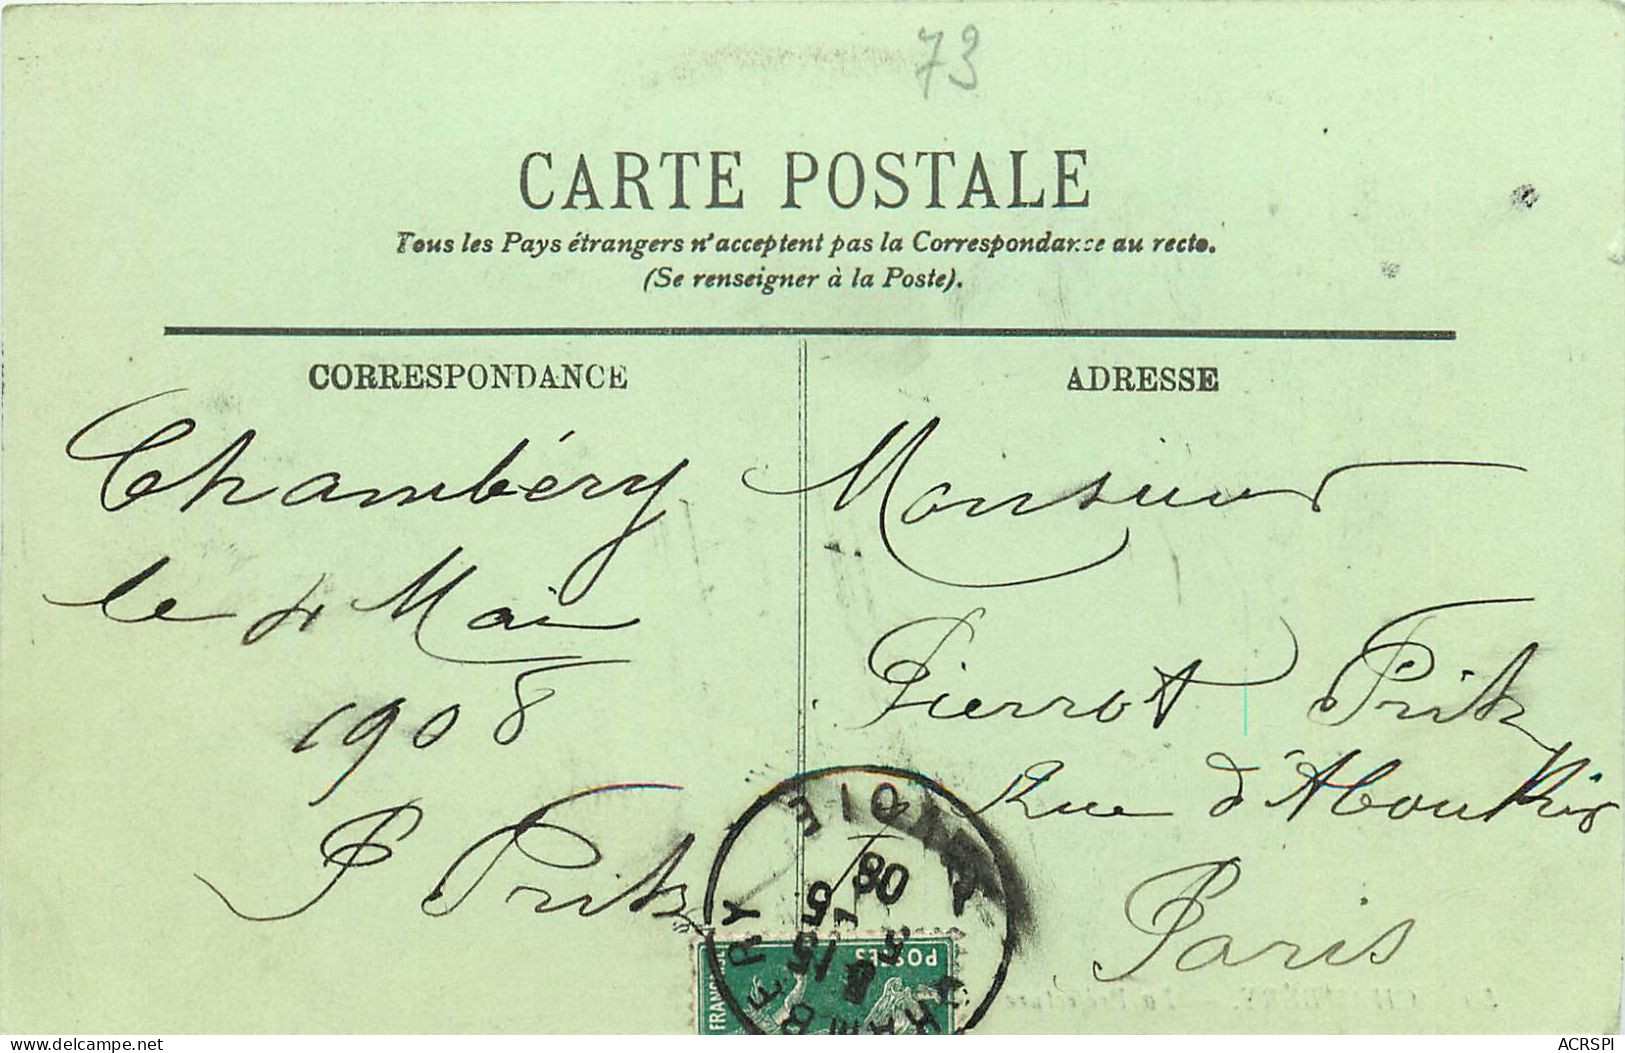 73
CARTE POSTALE
Tous les Pays étrangers n'acceptent pas la Correspondance au recto.
(Se renseigner à la Poste).
CORRESPONDANCE
Chambéry
le 4 Mai
1908
P Pritz
ADRESSE
Monsieur
Pierrot Pritz
Rue d'Aboukir
Paris
CHAMBERY
8 15
5
08
POSTES
FRANÇAISE
www.delcampe.net
ACRSPI